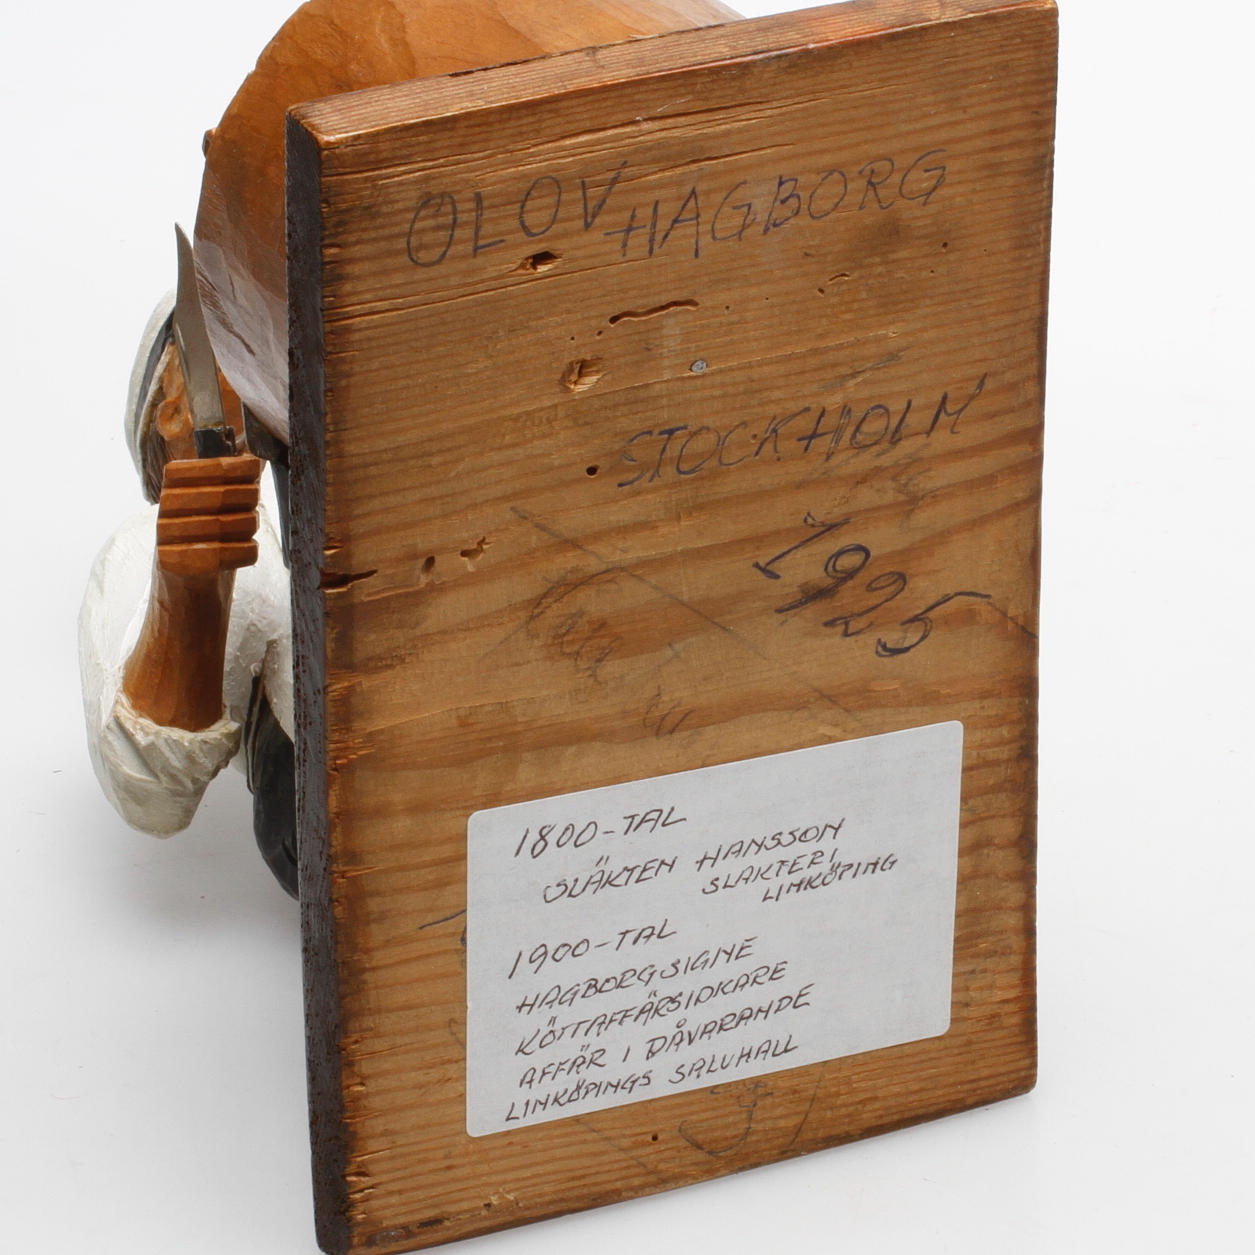 OLOV HAGBORG
STOCKHOLM
1925
1800-TAL
SLÄKTEN HANSSON
SLAKTERI
LINKÖPING
1900-TAL
HAGBORGSIGNE
KÖTTAFFÄRSIDKARE
AFFÄR I DÅVARANDE
LINKÖPINGS SALUHALL